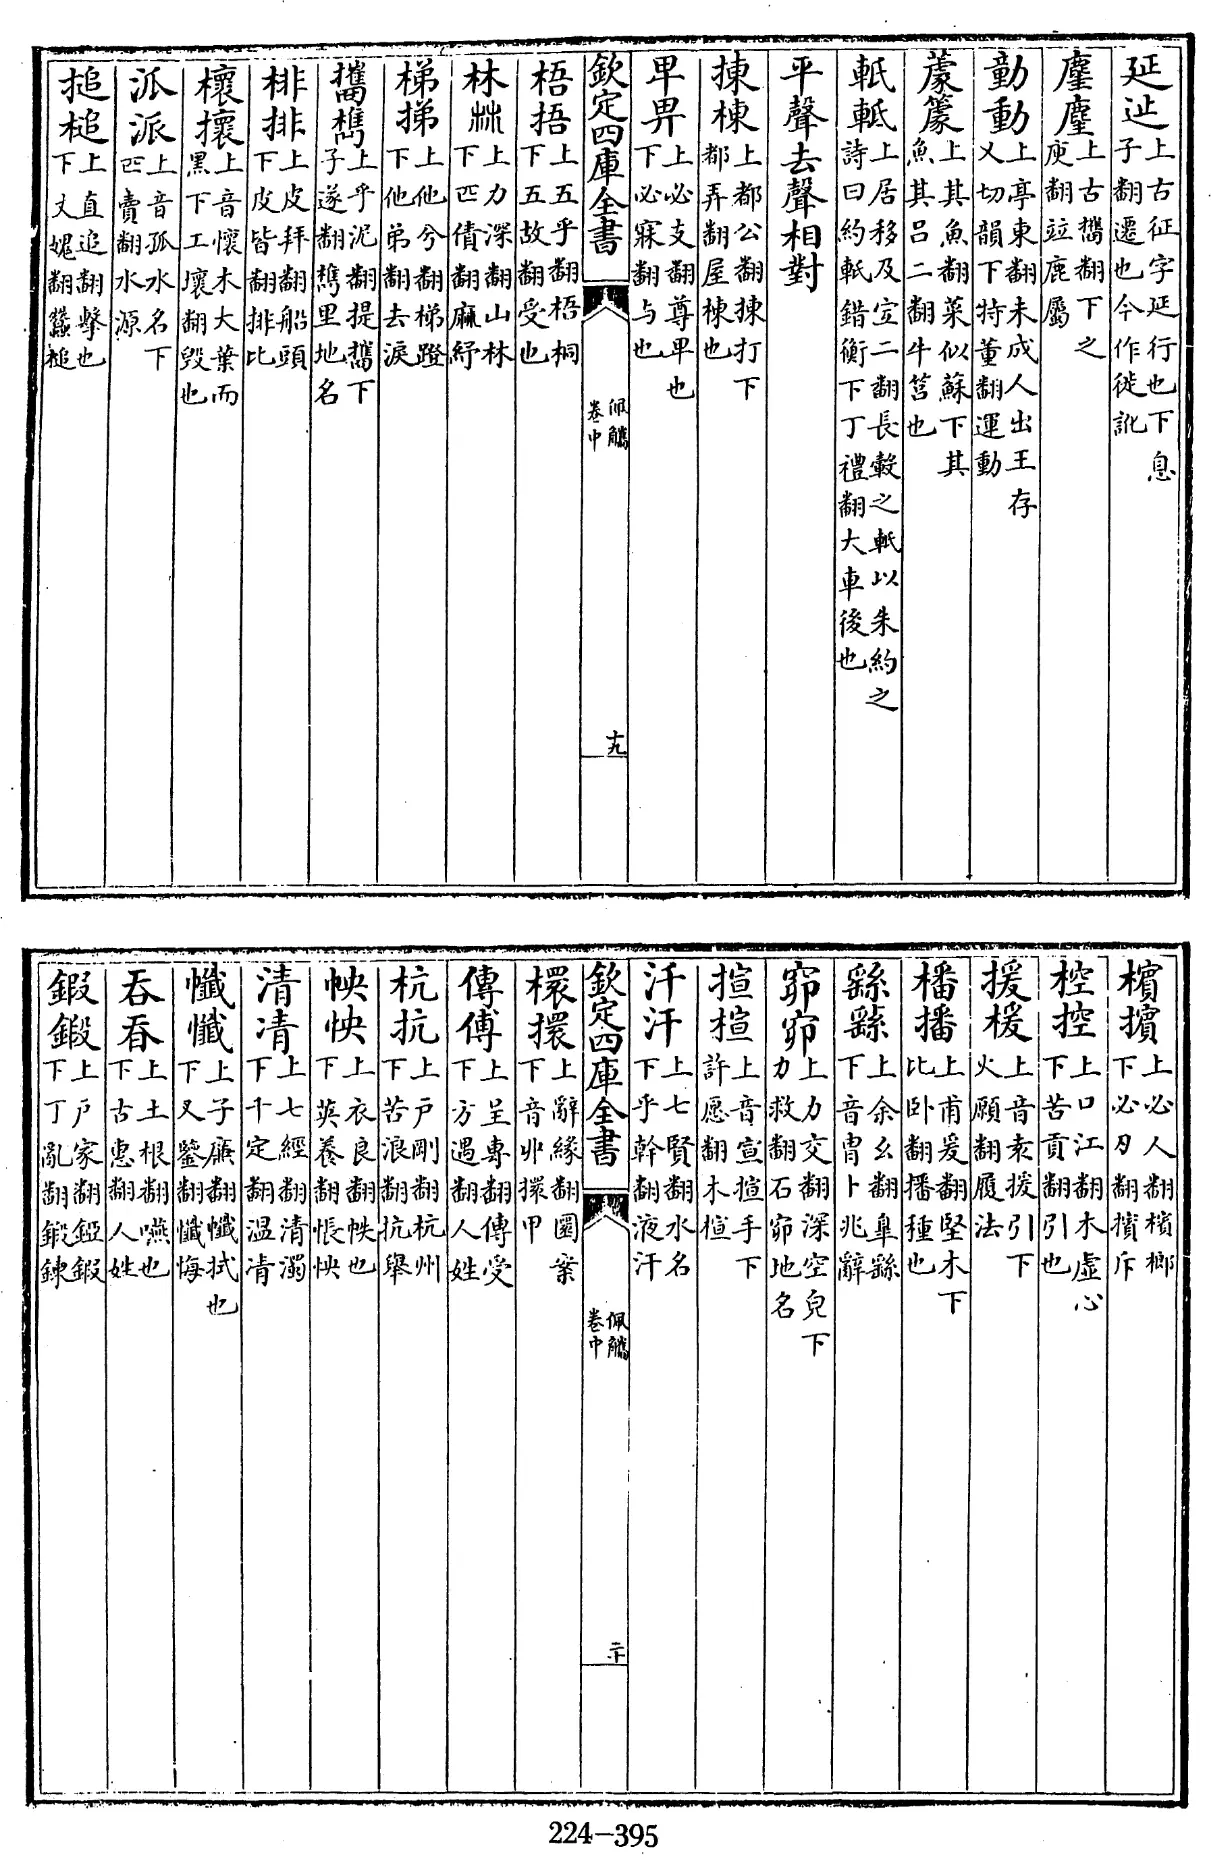 延㢟上古征字延行也下息子翻遷也今作徙訛
麈麆上古攜翻下之庾翻竝鹿屬
勭動上亭東翻未成人出王存乂切韻下特董翻運動
蘧籧上其魚翻菜似蘇下其魚其呂二翻牛筥也
軝軧上居移及宜二翻長轂之軝以朱約之詩曰約軝錯衡下丁禮翻大車後也
平聲去聲相對
揀棟上都公翻揀打下都弄翻屋棟也
卑畀上必支翻尊卑也下必寐翻与也
欽定四庫全書
佩觿卷中
十九
梧捂上五乎翻梧桐下五故翻受也
林𣏟上力深翻山林下匹債翻麻紵
梯挮上他兮翻梯蹬下他弟翻去淚
攜㰎上乎泥翻提攜下子遂翻檇里地名
棑排上皮拜翻船頭下皮皆翻排比
櫰攘上音懷木大葉而黑下工壞翻毀也
泒派上音孤水名下匹賣翻水源
搥槌上直追翻擊也下丈媿翻蠶槌
檳擯上必人翻檳榔下必刃翻擯斥
椌控上口江翻木虛心下苦貢翻引也
援楥上音袁援引下火願翻履法
橎播上甫爰翻堅木下比卧翻播種也
繇䌛上余幺翻臯繇下音胄卜兆辭
窌窌上力交翻深空皃下力救翻石窌地名
揎楦上音宣揎手下許愿翻木楦
汘汗上七賢翻水名下乎幹翻液汗
欽定四庫全書
佩觿卷中
二十
檈擐上辭緣翻圜案下音丱擐甲
傳傅上呈專翻傳受下方遇翻人姓
杭抗上戸剛翻杭州下苦浪翻抗舉
怏怏上衣良翻怏也下英養翻悵怏
清凊上七經翻清濁下千定翻温凊
幟懺上子廉翻幟拭也下叉鑒翻懺悔
吞呑上土根翻嚥也下古惠翻人姓
鍜鍛上戸家翻錏鍜下丁亂翻鍛鍊
224-395